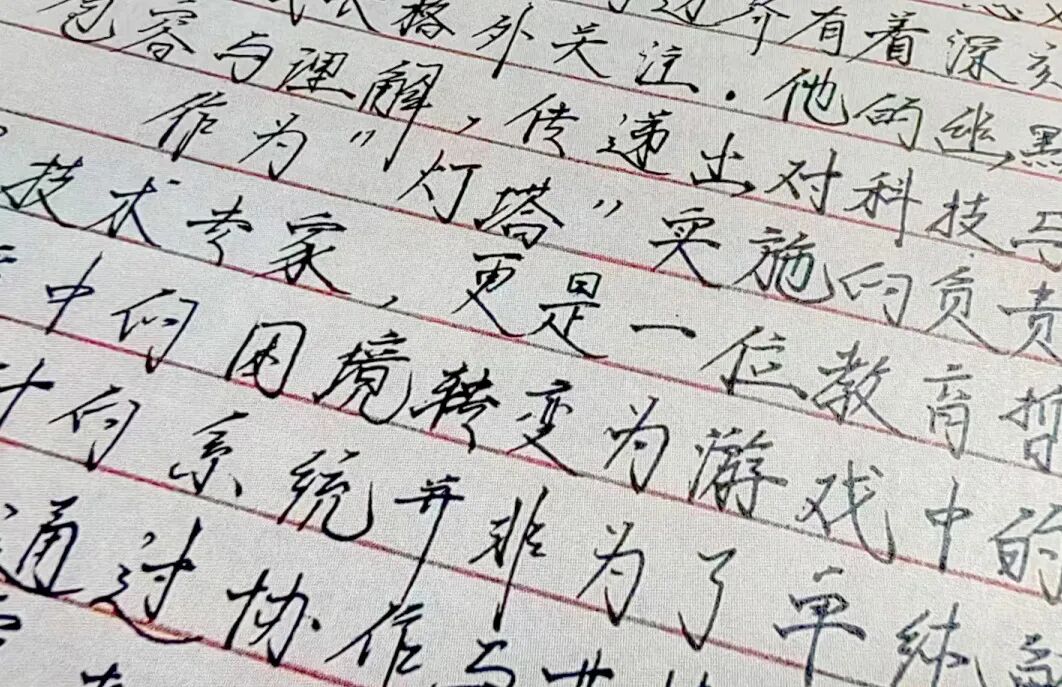 界有着深刻
格外关注.他的幽默
包容与理解,传递出对科技与
作为"灯塔"实施的负责
技术专家,更是一位教育哲
中的困境转变为游戏中的
计的系统并非为了单纯
通过协作与